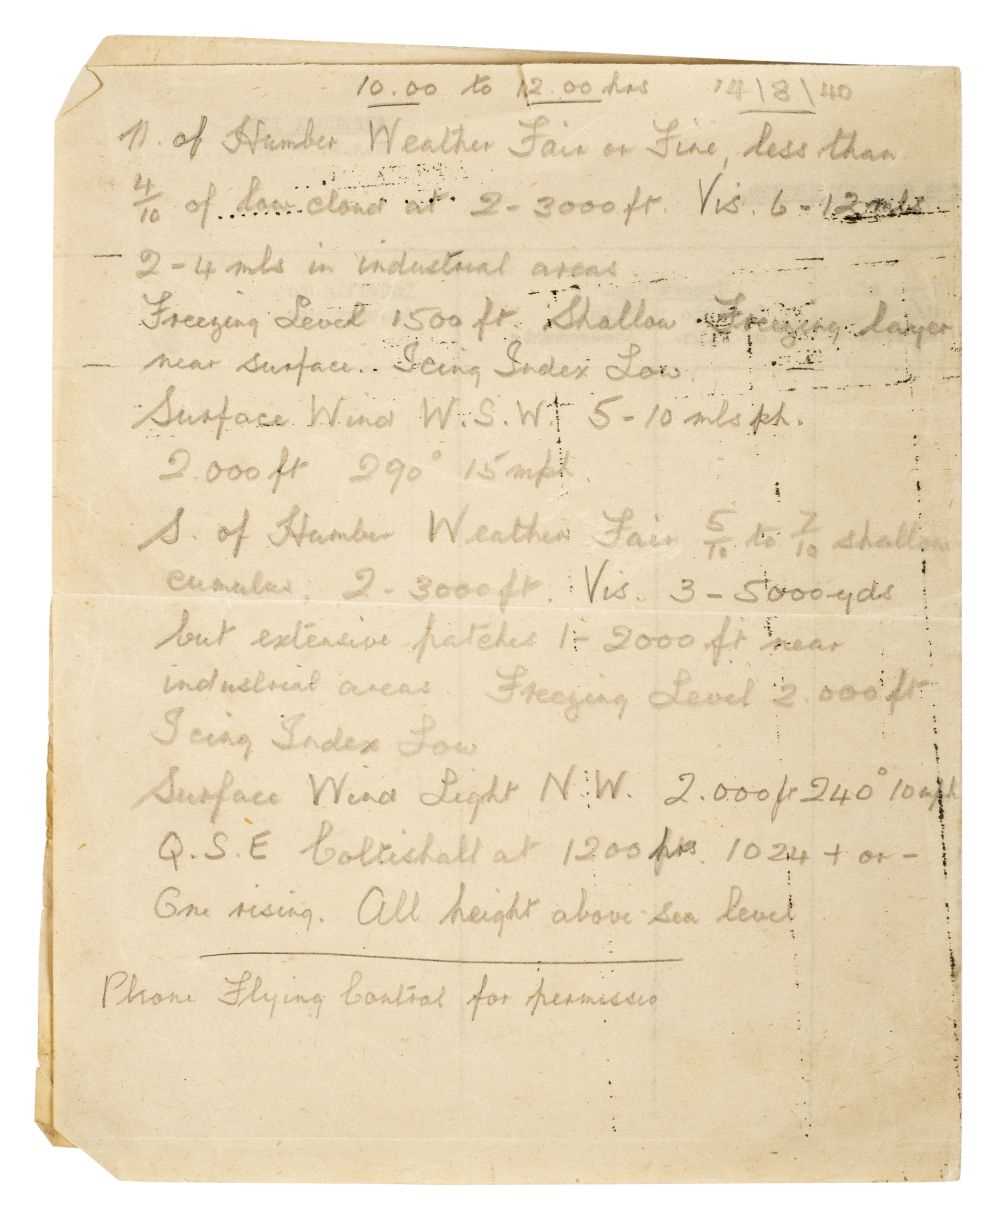 10.00 to 12.00 hrs 14/8/40
N. of Humber Weather Fair or Fine, less than
4/10 of low cloud at 2-3000 ft. Vis. 6-12 mls
2-4 mls in industrial areas.
Freezing Level 1500 ft. Shallow Freezing layer
near surface. Icing Index Low.
Surface Wind W.S.W. 5-10 mls ph.
2.000 ft 290° 15 mph.
S. of Humber Weather Fair 5/10 to 7/10 shallow
cumulus. 2-3000 ft. Vis. 3-5000 yds
but extensive patches 1-2000 ft near
industrial areas Freezing Level 2.000 ft
Icing Index Low
Surface Wind Light N.W. 2.000 ft 240° 10 mph
Q.S.E Coltishall at 1200 hrs. 1024 + or -
One rising. All height above sea level
Phone Flying Control for permissio